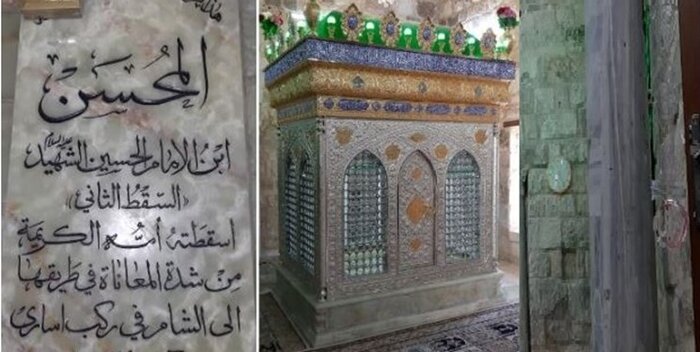 المُحسَن
ابن الامام الحسين الشهيد عليه السلام
«السقط الثاني»
اسقطته أمه الكريمة
من شدة المعاناة في طريقها
الى الشام في ركب اسارى